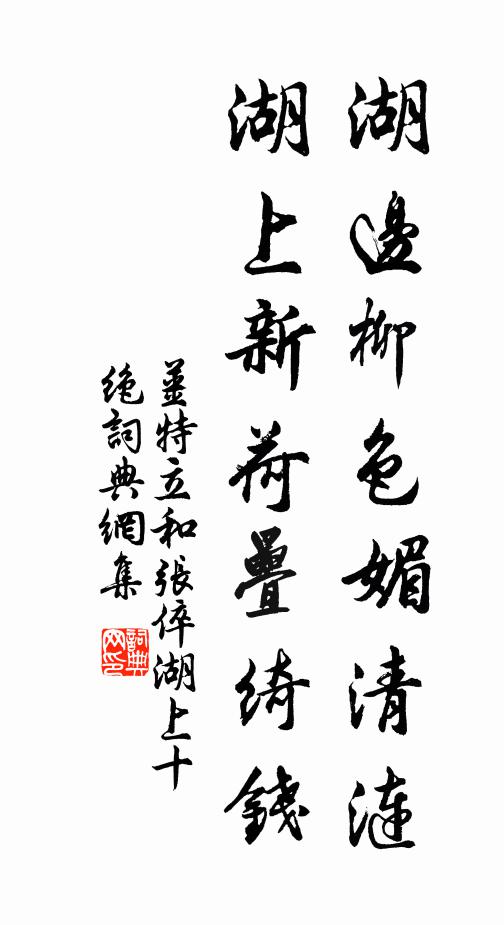 湖邊柳色媚清漣
湖上新荷疊綺錢
姜特立和張倅湖上十
絶詞典網集
詞典网印